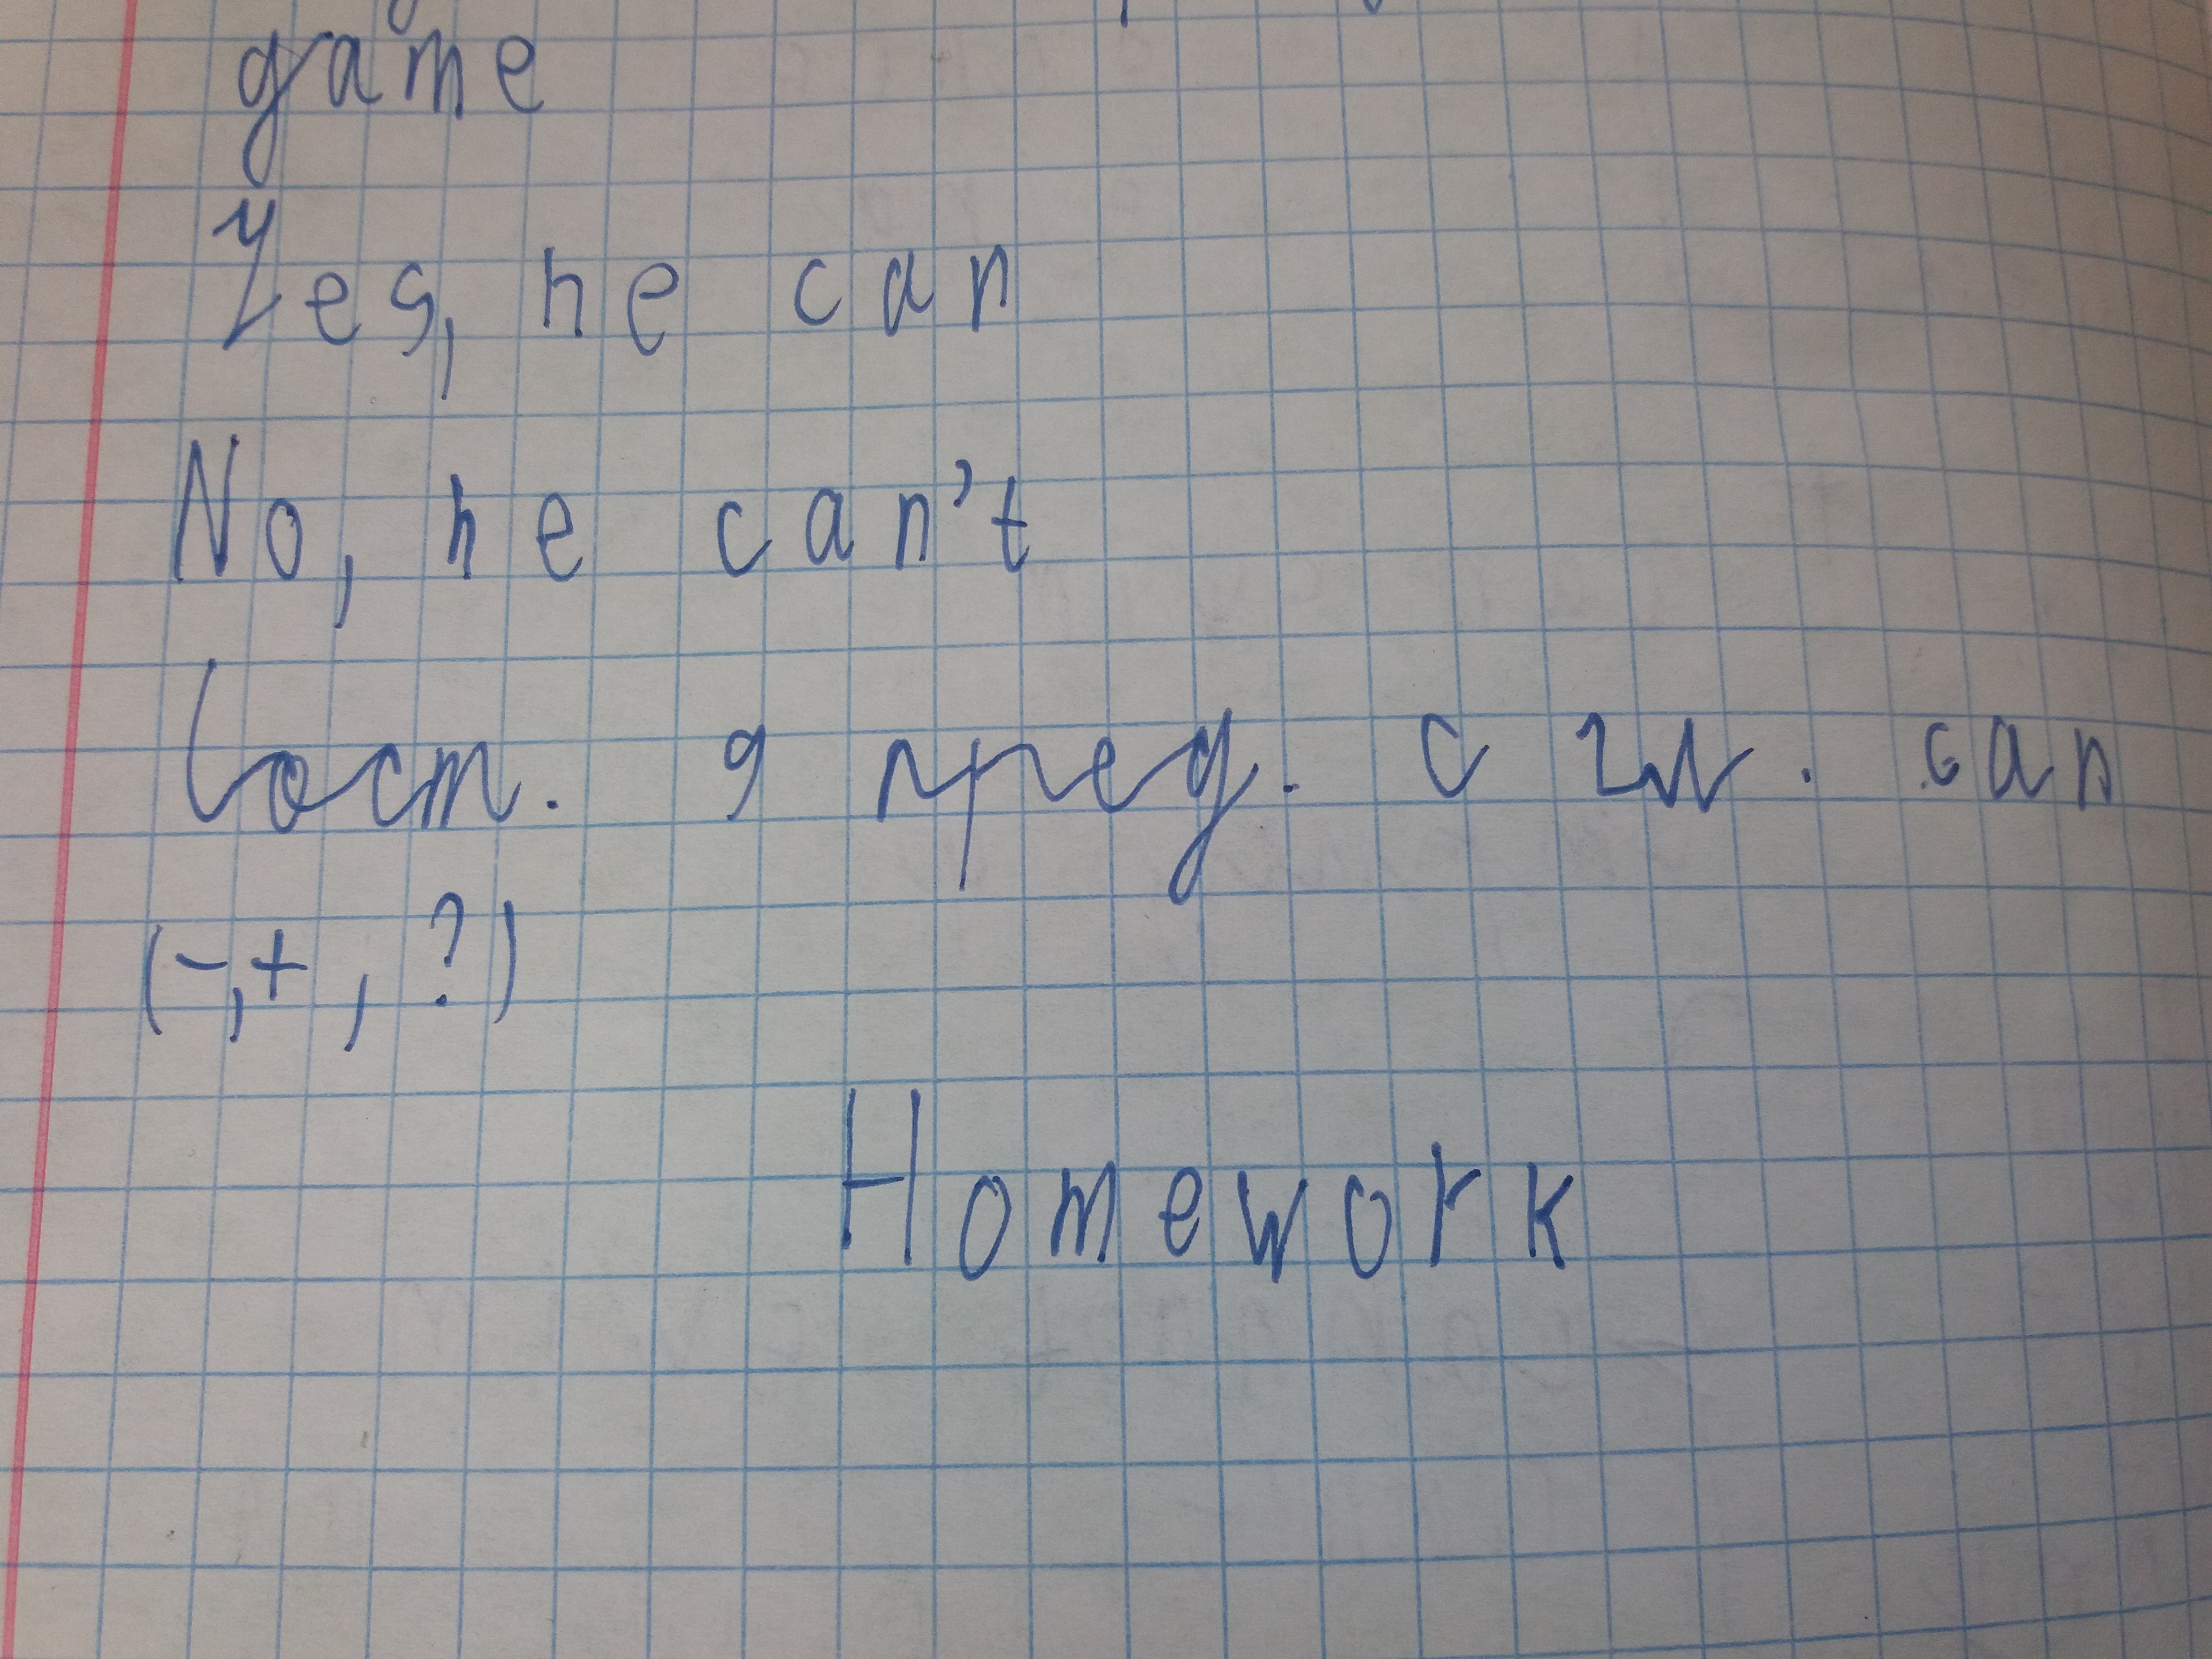 game
Yes, he can
No, he can't
Сост. 9 пред. с гл. can
(-,+, ?)
Homework